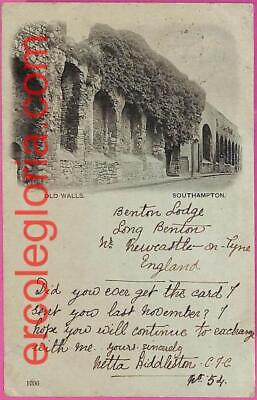 OLD WALLS. SOUTHAMPTON.
Benton Lodge
Long Benton
Nr Newcastle-on-Tyne
England
Did you ever get the card I
sent you last November? I
hope you will continue to exchange
with me. yours sincerely
Netta Biddleston - C.I.C
No. 54.
1206
ercolegloria.com